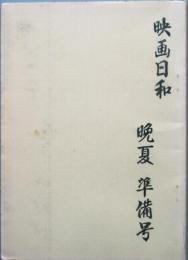 映画日和
晩夏 準備号